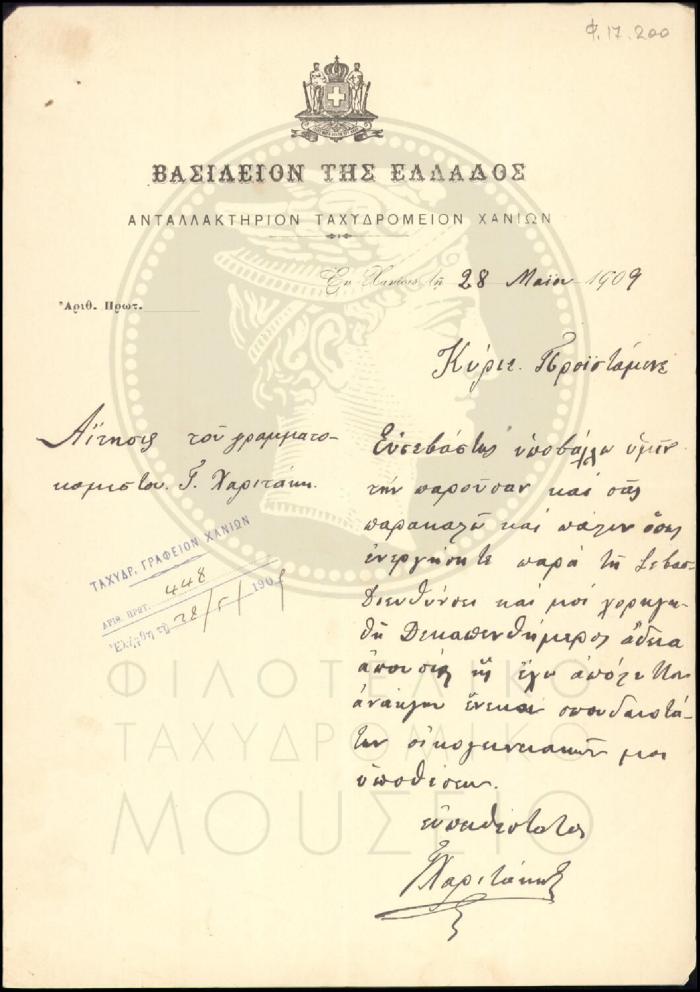 Φ. 17. 200
ΒΑΣΙΛΕΙΟΝ ΤΗΣ ΕΛΛΑΔΟΣ
ΑΝΤΑΛΛΑΚΤΗΡΙΟΝ ΤΑΧΥΔΡΟΜΕΙΟΝ ΧΑΝΙΩΝ
Ἐν Χανίοις τῇ 28 Μαΐου 1909
Ἀριθ. Πρωτ.
Κύριε Προϊστάμενε
Αἴτησις τοῦ γραμματο-
κομιστοῦ Γ. Χαριτάκη.
ΤΑΧΥΔΡ. ΓΡΑΦΕΙΟΝ ΧΑΝΙΩΝ
ΑΡΙΘ. ΠΡΩΤ. 448
Ἐλήφθη τῇ 28/5/1909
Εὐσεβάστως ὑποβάλλω ὑμῖν
τὴν παροῦσαν καὶ σᾶς
παρακαλῶ καὶ πάλιν ὅπως
ἐνεργήσητε παρὰ τῇ Σεβασ.
Διευθύνσει καὶ μοὶ χορηγη-
θῇ Δεκαπενθήμερος ἄδεια
ἀπουσίας ἧς ἔχω ἀπόλυτον
ἀνάγκην ἕνεκα σπουδαιοτά-
των οἰκογενειακῶν μου
ὑποθέσεων.
εὐπειθέστατος
Χαριτάκης
ΦΙΛΟΤΕΛΙΚΟ
ΤΑΧΥΔΡΟΜΙΚΟ
ΜΟΥΣΕΙΟ